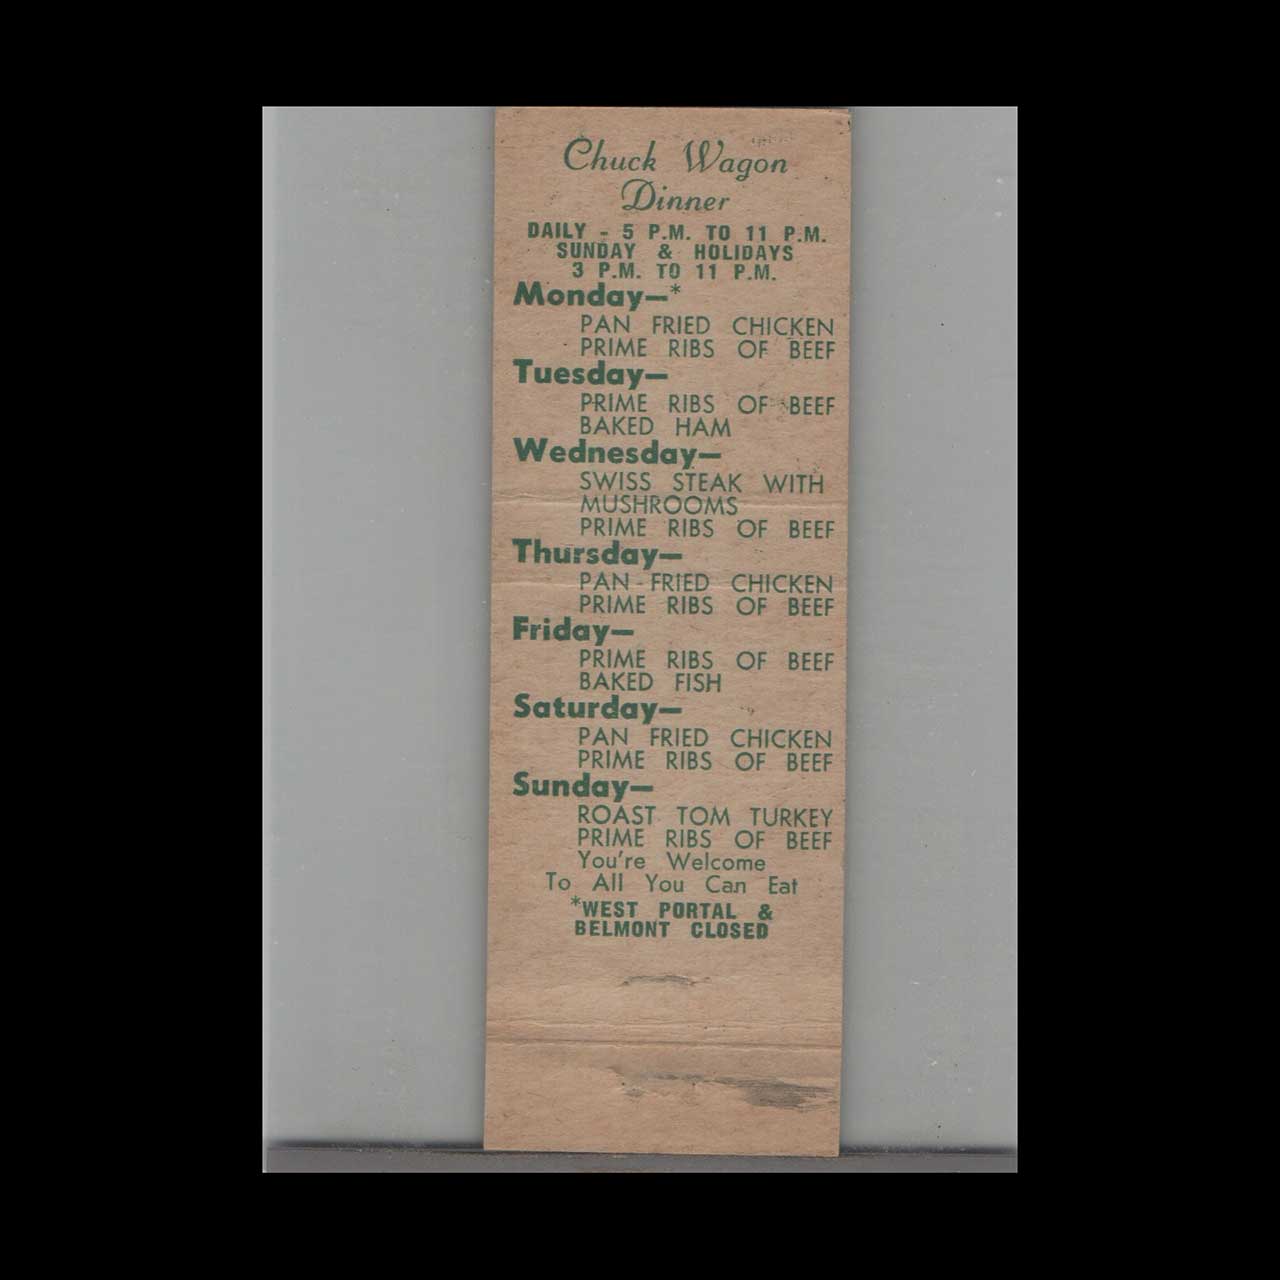 Chuck Wagon
Dinner
DAILY - 5 P.M. TO 11 P.M.
SUNDAY & HOLIDAYS
3 P.M. TO 11 P.M.
Monday—*
PAN FRIED CHICKEN
PRIME RIBS OF BEEF
Tuesday—
PRIME RIBS OF BEEF
BAKED HAM
Wednesday—
SWISS STEAK WITH
MUSHROOMS
PRIME RIBS OF BEEF
Thursday—
PAN-FRIED CHICKEN
PRIME RIBS OF BEEF
Friday—
PRIME RIBS OF BEEF
BAKED FISH
Saturday—
PAN FRIED CHICKEN
PRIME RIBS OF BEEF
Sunday—
ROAST TOM TURKEY
PRIME RIBS OF BEEF
You're Welcome
To All You Can Eat
*WEST PORTAL &
BELMONT CLOSED